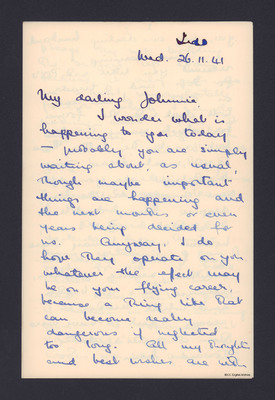 Wed. 26.11.41
My darling Johnnie.
I wonder what is
happening to you today
- probably you are simply
waiting about, as usual,
though maybe important
things are happening and
the next months or even
years being decided for
us. Anyway, I do
hope they operate on you
whatever the effect may
be on your flying career,
because a thing like that
can become really
dangerous if neglected
too long. All my thoughts
and best wishes are with